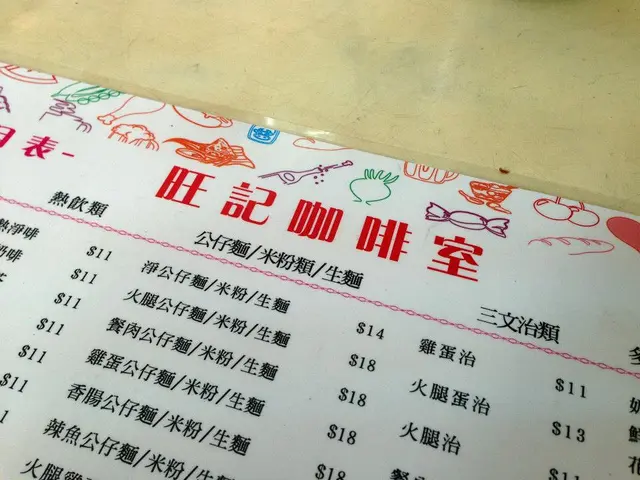 目表-
旺記咖啡室
熱飲類
熱淨啡
$11
奶啡
$11
茶
$11
$11
$11
公仔麵/米粉類/生麵
淨公仔麵/米粉/生麵
$14
火腿公仔麵/米粉/生麵
$18
餐肉公仔麵/米粉/生麵
$18
雞蛋公仔麵/米粉/生麵
$18
香腸公仔麵/米粉/生麵
$18
辣魚公仔麵/米粉/生麵
$18
三文治類
雞蛋治
$11
火腿蛋治
$13
火腿治
$11